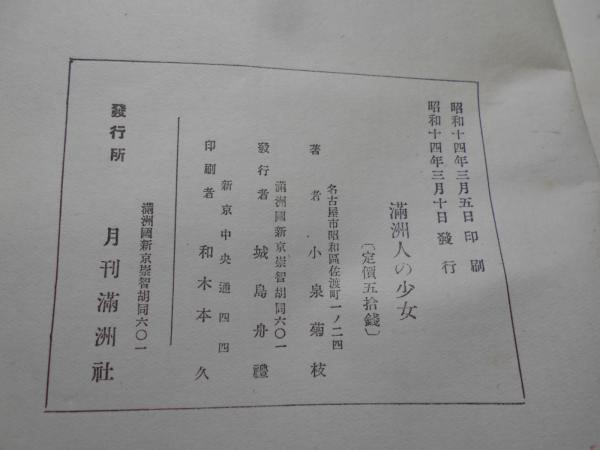 昭和十四年三月五日印刷
昭和十四年三月十日發行
滿洲人の少女
〔定價五拾錢〕
名古屋市昭和區佐渡町一ノ二四
著者 小泉菊枝
滿洲國新京崇智胡同六〇一
發行者 城島舟禮
新京中央通四四
印刷者 和木本久
滿洲國新京崇智胡同六〇一
發行所 月刊滿洲社